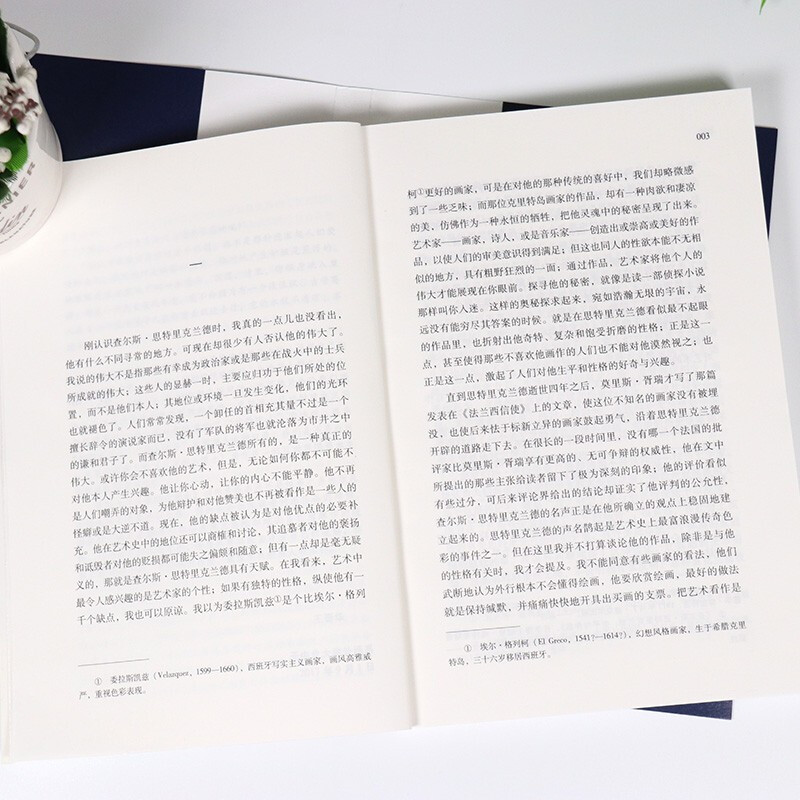 一
刚认识查尔斯·思特里克兰德时，我真的一点儿也没看出，
他有什么不同寻常的地方。可现在却很少有人否认他的伟大了。
我说的伟大不是指那些有幸成为政治家或是那些在战火中的士兵
所成就的伟大；这些人的显赫一时，主要应归功于他们所处的位
置，而不是他们本人；其地位或环境一旦发生变化，他们的光环
也就褪色了。人们常常发现，一个卸任的首相充其量不过是一个
擅长辞令的演说家而已，没有了军队的将军也就沦落为市井之中
的谦和君子了。而查尔斯·思特里克兰德所有的，是一种真正的
伟大。或许你会不喜欢他的艺术，但是，无论如何你都不可能不
对他本人产生兴趣。他让你心动，让你的内心不能平静。他不再
是人们嘲弄的对象，为他辩护和对他赞美也不再被看作是一些人的
怪癖或是大逆不道。现在，他的缺点被认为是对他优点的必要补
充。他在艺术史中的地位还可以商榷和讨论，其追慕者对他的褒扬
和诋毁者对他的贬损都可能失之偏颇和随意；但有一点却是毫无疑
义的，那就是查尔斯·思特里克兰德具有天赋。在我看来，艺术中
最令人感兴趣的是艺术家的个性；如果有独特的性格，纵使他有一
千个缺点，我也可以原谅。我以为委拉斯凯兹①是个比埃尔·格列
① 委拉斯凯兹（Velazquez，1599—1660），西班牙写实主义画家，画风高雅威
严，重视色彩表现。
003
柯①更好的画家，可是在对他的那种传统的喜好中，我们却略微感
到了一些乏味；而那位克里特岛画家的作品，却有一种肉欲和凄凉
的美，仿佛作为一种永恒的牺牲，把他灵魂中的秘密呈现了出来。
艺术家——画家，诗人，或是音乐家——创造出或崇高或美好的作
品，以使人们的审美意识得到满足；但这也同人的性欲本能不无相
似的地方，具有粗野狂烈的一面；通过作品，艺术家将他个人的
伟大才能展现在你眼前。探寻他的秘密，就像是读一部侦探小说
那样叫你人迷。这样的奥秘探求起来，宛如浩瀚无垠的宇宙，永
远没有能穷尽其答案的时候。就是在思特里克兰德看似最不起眼
的作品里，也折射出他奇特、复杂和饱受折磨的性格；正是这一
点，甚至使得那些不喜欢他画作的人们也不能对他漠然视之；也
正是这一点，激起了人们对他生平和性格的好奇与兴趣。
直到思特里克兰德逝世四年之后，莫里斯·胥瑞才写了那篇
发表在《法兰西信使》上的文章，使这位不知名的画家没有被埋
没，也使后来怯于标新立异的画家鼓起勇气，沿着思特里克兰德
开辟的道路走下去。在很长的一段时间里，没有哪一个法国的批
评家比莫里斯·胥瑞享有更高的、无可争辩的权威性，他在文中
所提出的那些主张给读者留下了极为深刻的印象；他的评价看似
有些过分，可后来评论界给出的结论却证实了他评判的公允性，
查尔斯·思特里克兰德的名声正是在他所确立的观点上稳固地建
立起来的。思特里克兰德的声名鹊起是艺术史上最富浪漫传奇色
彩的事件之一。但在这里我并不打算谈论他的作品，除非是与他
的性格有关时，我才会提及。我不能同意有些画家的看法，他们
武断地认为外行根本不会懂得绘画，他要欣赏绘画，最好的做法
就是保持缄默，并痛痛快快地开具出买画的支票。把艺术看作是
① 埃尔·格列柯（El Greco，1541?—1614?），幻想风格画家，生于希腊克里
特岛，三十六岁移居西班牙。